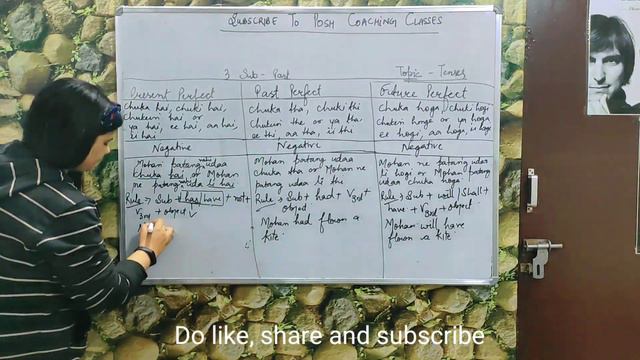 SUBSCRIBE TO POSH COACHING CLASSES
3 Sub-Part
Topic - Tenses
Present Perfect
chuka hai, chuki hai,
chuken hai or
ya hai, ee hai, aa hai,
ti hai
Negative
Mohan patang udaa
chuka hai or Mohan
ne patang uda li hai
Rule → Sub + has/have + not +
V3rd + object
Past Perfect
Chuka tha, chuki thi
Chuken the or ya tha
ee thi, aa tha, li thi
Negative
Mohan patang udaa
chuka tha or Mohan ne
patang udaa li thi
Rule → Sub + had + V3rd +
object
Mohan had flown a
kite.
Future Perfect
Chuka hoga, chuki hogi
chuken honge or ya hoga
ee hogi, aa hoga, li hogi
Negative
Mohan ne patang udaa
li hogi or Mohan patang
udaa chuka hoga
Rule → Sub + will/shall +
have + V3rd + object
Mohan will have
flown a kite.
Do like, share and subscribe